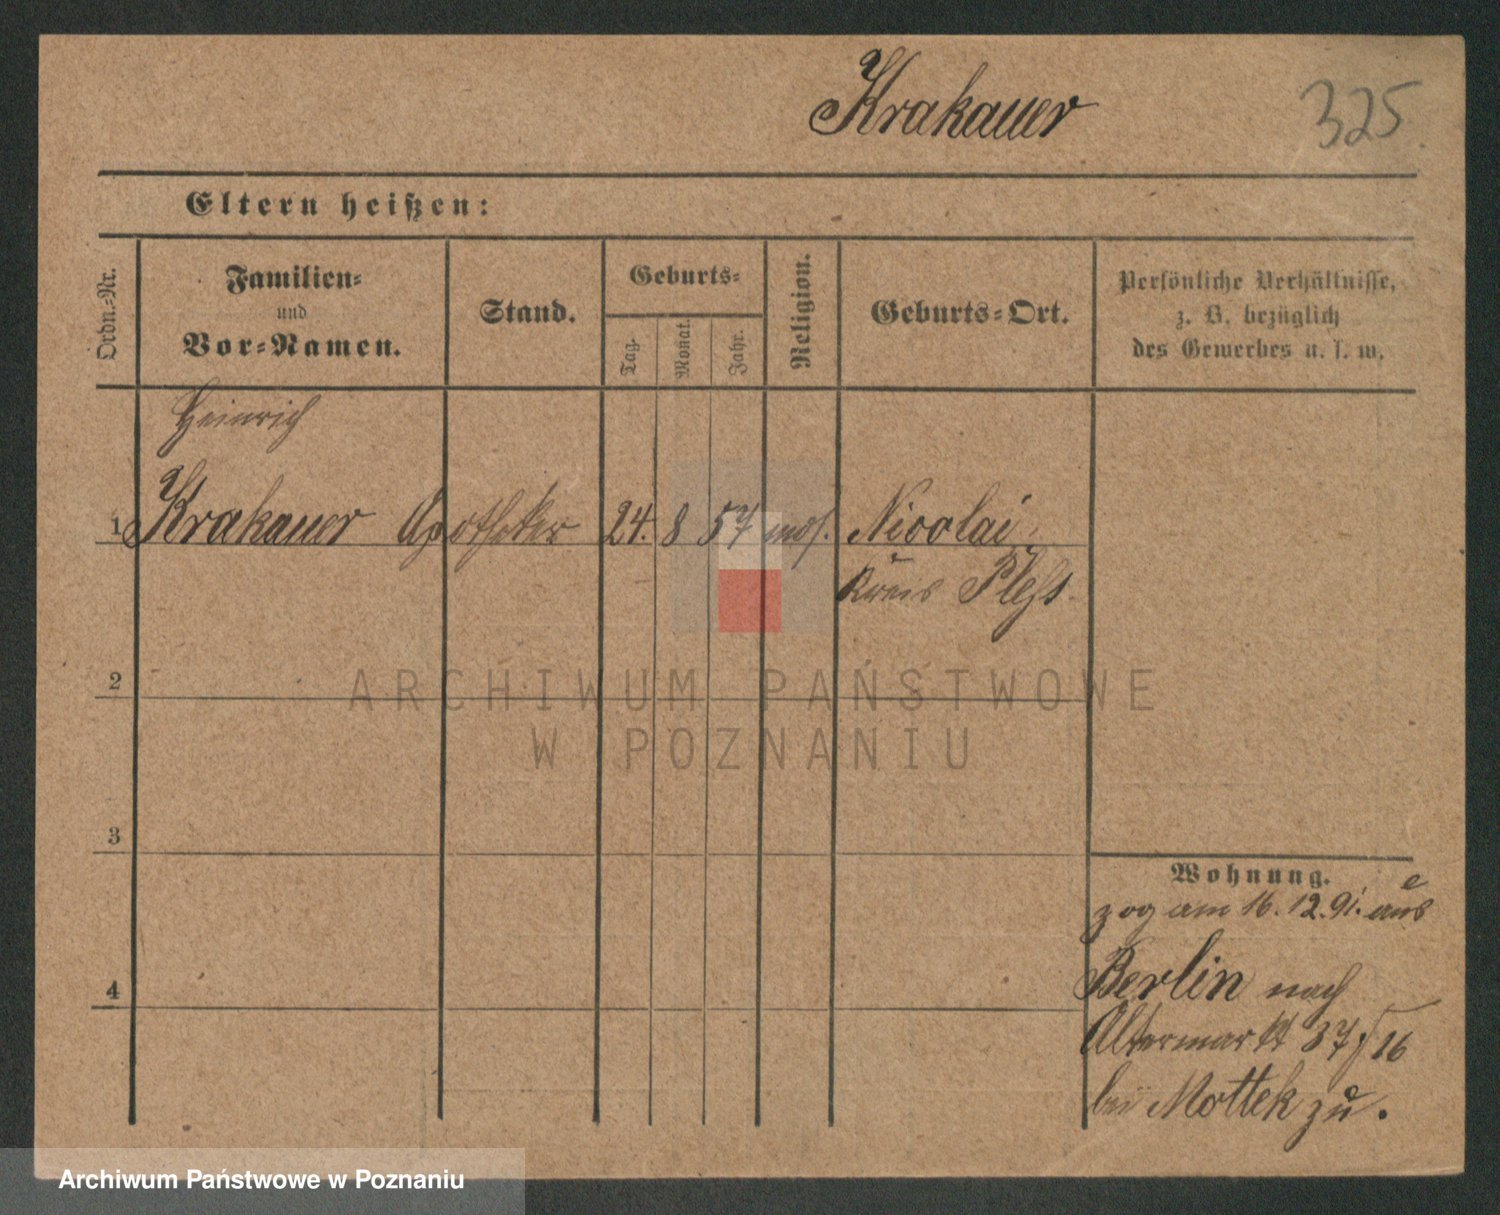 Krakauer
325
Eltern heißen:
Ordn.=Nr.
Familien=
und
Vor=Namen.
Stand.
Geburts=
Tag.
Monat.
Jahr.
Religion.
Geburts=Ort.
Persönliche Verhältnisse,
z. B. bezüglich
des Gewerbes u. s. w.
Heinrich
1 Krakauer Apotheker 24. 8 57 mos. Nicolai
Kreis Pleß.
2
ARCHIWUM PAŃSTWOWE
W POZNANIU
3
Wohnung.
zog am 16. 12. 91. aus
4
Berlin nach
Altermarkt 37 16
bei Mottek zu.
Archiwum Państwowe w Poznaniu